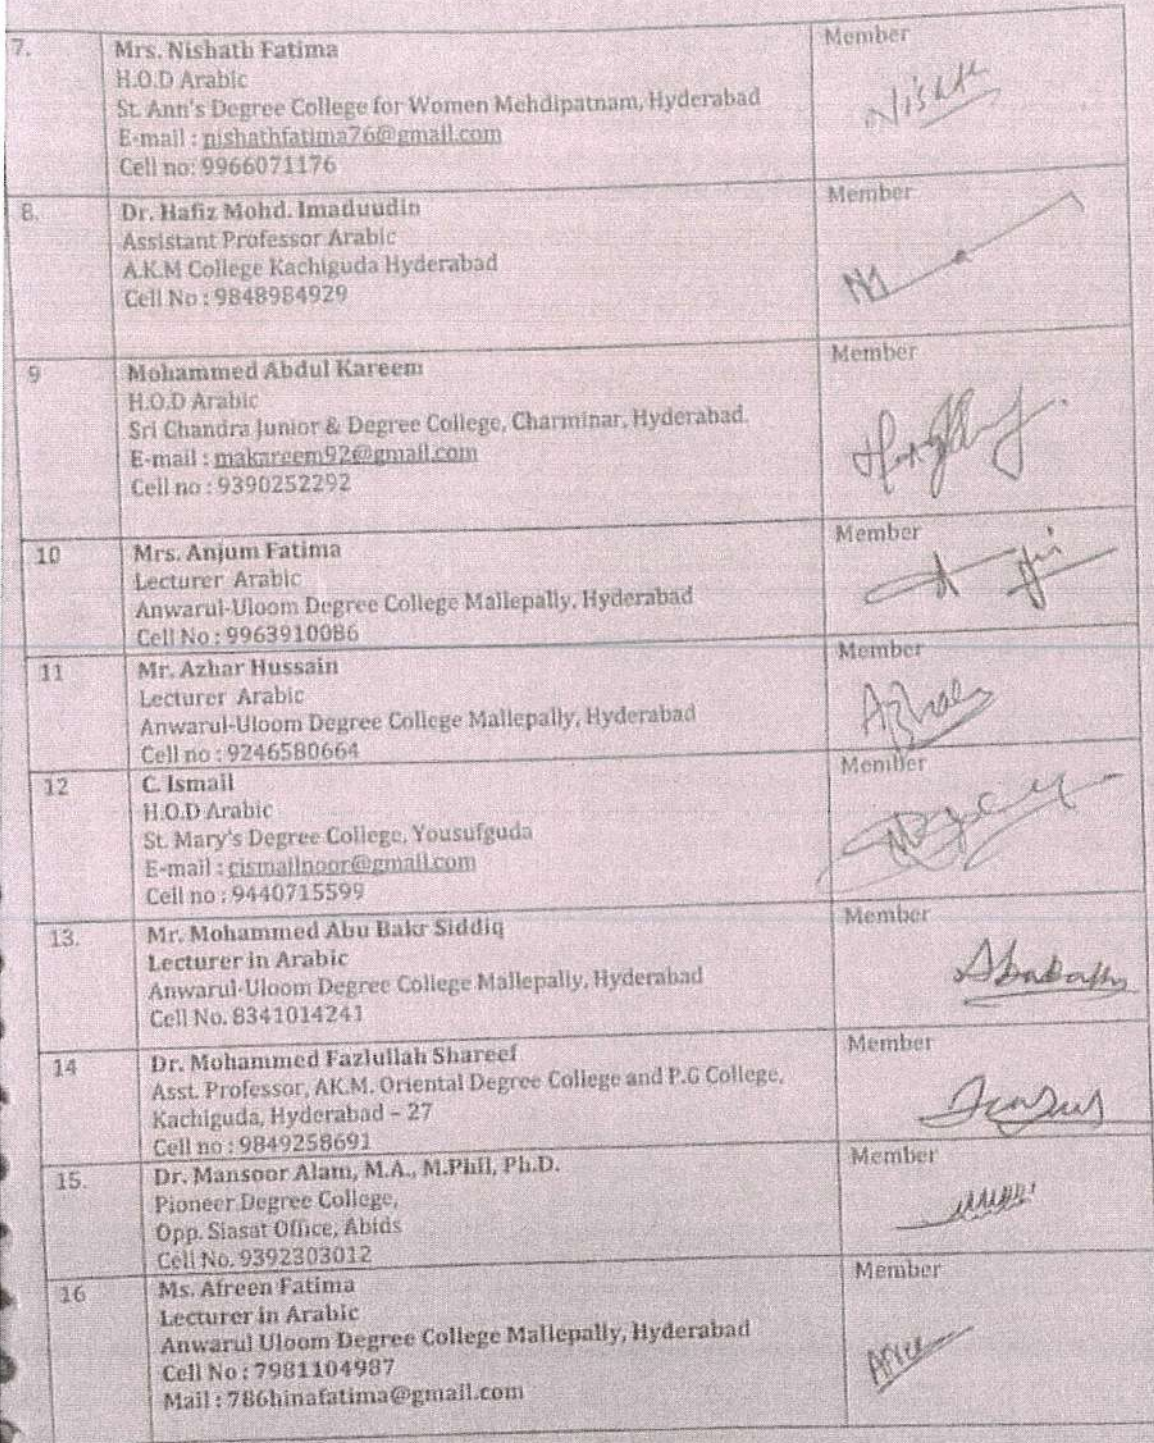 7.
Mrs. Nishath Fatima
H.O.D Arabic
St. Ann's Degree College for Women Mehdipatnam, Hyderabad
E-mail : nishathfatima76@gmail.com
Cell no: 9966071176
Member
Nishath
8.
Dr. Hafiz Mohd. Imaduudin
Assistant Professor Arabic
A.K.M College Kachiguda Hyderabad
Cell No : 9848984929
Member
9
Mohammed Abdul Kareem
H.O.D Arabic
Sri Chandra Junior & Degree College, Charminar, Hyderabad.
E-mail : makareem92@gmail.com
Cell no : 9390252292
Member
10
Mrs. Anjum Fatima
Lecturer Arabic
Anwarul-Uloom Degree College Mallepally, Hyderabad
Cell No : 9963910086
Member
11
Mr. Azhar Hussain
Lecturer Arabic
Anwarul-Uloom Degree College Mallepally, Hyderabad
Cell no : 9246580664
Member
Azhar
12
C. Ismail
H.O.D Arabic
St. Mary's Degree College, Yousufguda
E-mail : cismailnoor@gmail.com
Cell no : 9440715599
Member
13.
Mr. Mohammed Abu Bakr Siddiq
Lecturer in Arabic
Anwarul-Uloom Degree College Mallepally, Hyderabad
Cell No. 8341014241
Member
14
Dr. Mohammed Fazlullah Shareef
Asst. Professor, AK.M. Oriental Degree College and P.G College,
Kachiguda, Hyderabad – 27
Cell no : 9849258691
Member
15.
Dr. Mansoor Alam, M.A., M.Phil, Ph.D.
Pioneer Degree College,
Opp. Siasat Office, Abids
Cell No. 9392303012
Member
16
Ms. Afreen Fatima
Lecturer in Arabic
Anwarul Uloom Degree College Mallepally, Hyderabad
Cell No : 7981104987
Mail : 786hinafatima@gmail.com
Member